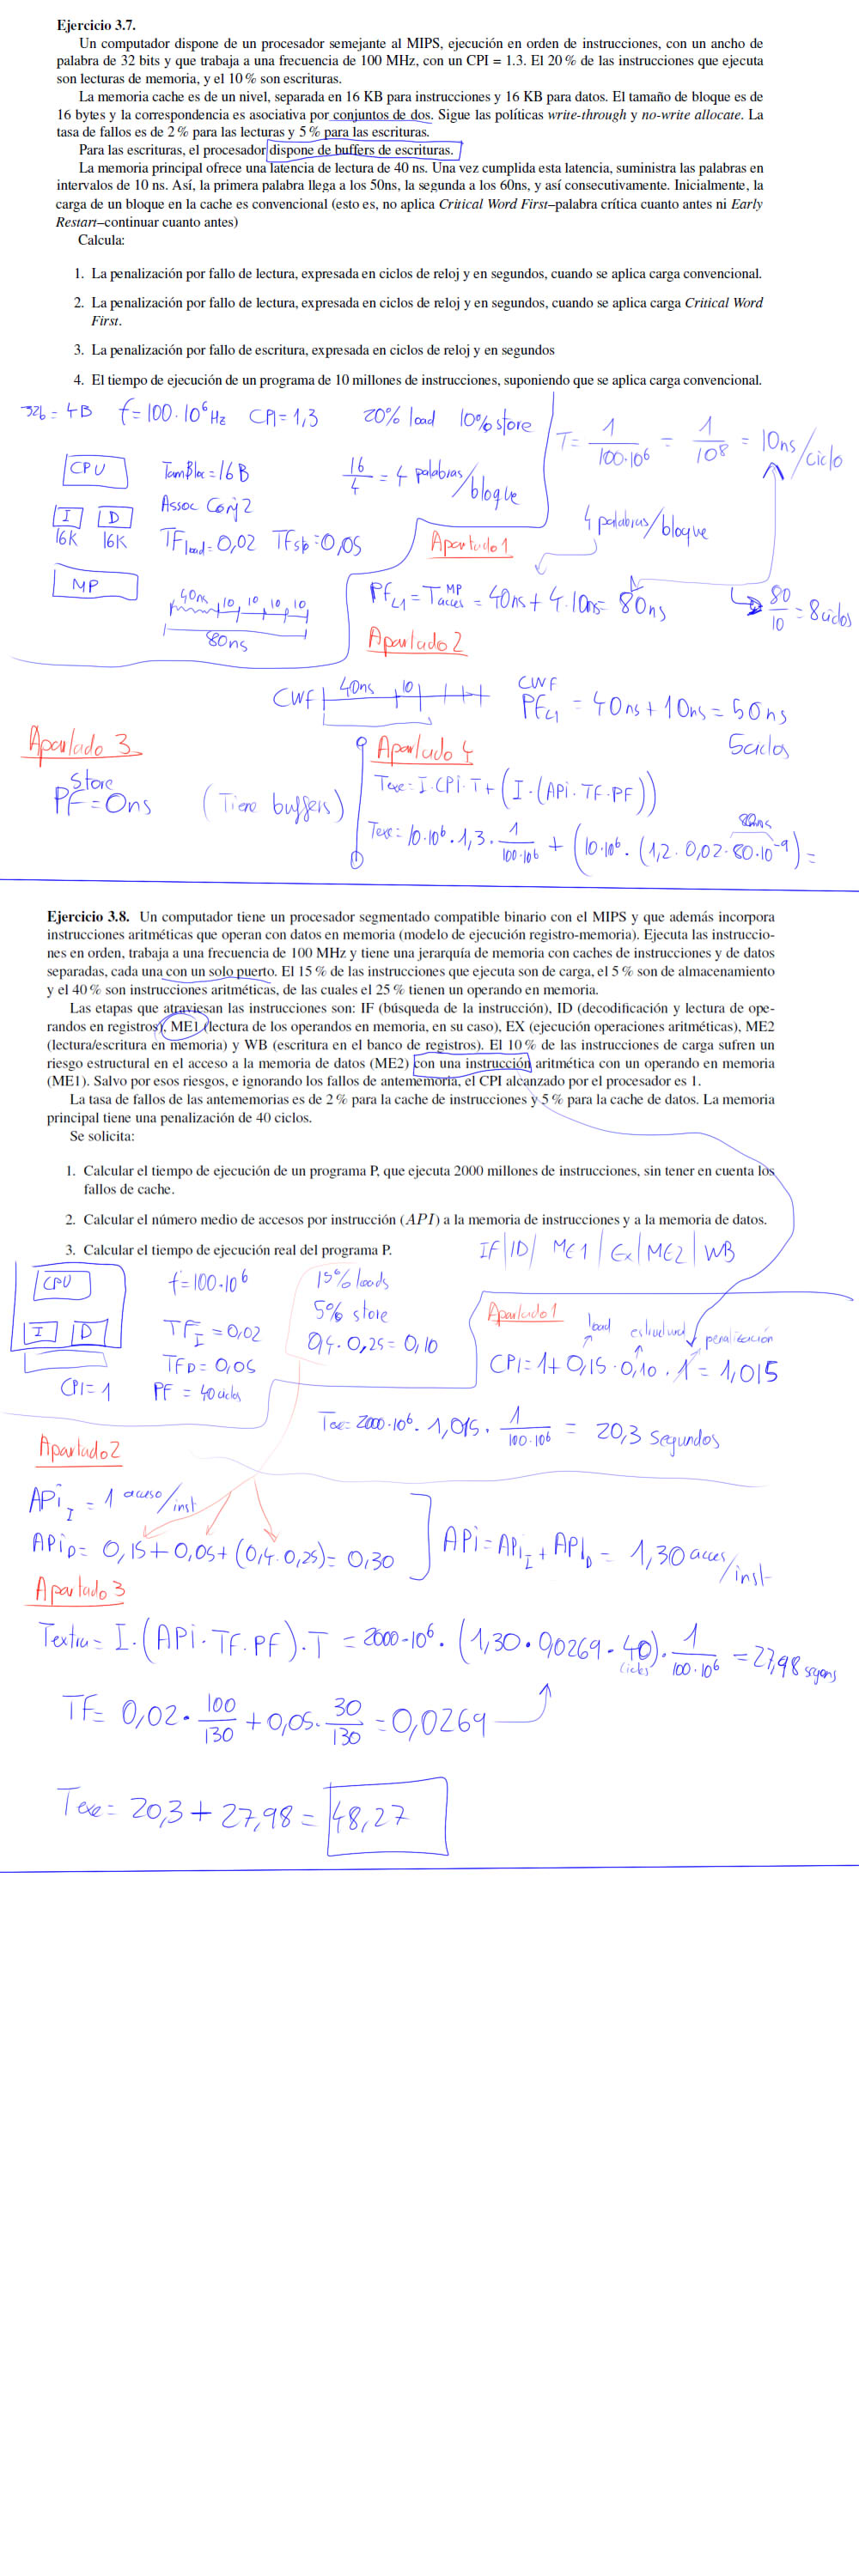 Ejercicio 3.7.
Un computador dispone de un procesador semejante al MIPS, ejecución en orden de instrucciones, con un ancho de
palabra de 32 bits y que trabaja a una frecuencia de 100 MHz, con un CPI = 1.3. El 20 % de las instrucciones que ejecuta
son lecturas de memoria, y el 10 % son escrituras.
La memoria cache es de un nivel, separada en 16 KB para instrucciones y 16 KB para datos. El tamaño de bloque es de
16 bytes y la correspondencia es asociativa por conjuntos de dos. Sigue las políticas write-through y no-write allocate. La
tasa de fallos es de 2 % para las lecturas y 5 % para las escrituras.
Para las escrituras, el procesador dispone de buffers de escrituras.
La memoria principal ofrece una latencia de lectura de 40 ns. Una vez cumplida esta latencia, suministra las palabras en
intervalos de 10 ns. Así, la primera palabra llega a los 50ns, la segunda a los 60ns, y así consecutivamente. Inicialmente, la
carga de un bloque en la cache es convencional (esto es, no aplica Critical Word First–palabra crítica cuanto antes ni Early
Restart–continuar cuanto antes)
Calcula:
1. La penalización por fallo de lectura, expresada en ciclos de reloj y en segundos, cuando se aplica carga convencional.
2. La penalización por fallo de lectura, expresada en ciclos de reloj y en segundos, cuando se aplica carga Critical Word
First.
3. La penalización por fallo de escritura, expresada en ciclos de reloj y en segundos
4. El tiempo de ejecución de un programa de 10 millones de instrucciones, suponiendo que se aplica carga convencional.
32b = 4B f=100·10⁶ Hz CPI=1,3 20% load 10% store
T= 1/100·10⁶ = 1/10⁸ = 10ns/ciclo
CPU TamBloc=16B 16/4 = 4 palabras/bloque
I D Assoc Conj 2
16K 16K TFload=0,02 TFsto=0,05
4 palabras/bloque
Apartado 1
MP 40ns 10 10 10 10
80ns
PF L1 = T acces MP = 40ns + 4·10ns = 80ns
80/10 = 8 ciclos
Apartado 2
CWF 40ns 10
CWF
PF L1 = 40ns + 10ns = 50ns
5 ciclos
Apartado 3
Store
PF = 0ns (Tiene buffers)
Apartado 4
Texe= I·CPI·T + (I·(API·TF·PF))
80ns
Texe= 10·10⁶·1,3· 1/100·10⁶ + (10·10⁶·(1,2·0,02·80·10⁻⁹) =
Ejercicio 3.8. Un computador tiene un procesador segmentado compatible binario con el MIPS y que además incorpora
instrucciones aritméticas que operan con datos en memoria (modelo de ejecución registro-memoria). Ejecuta las instruccio-
nes en orden, trabaja a una frecuencia de 100 MHz y tiene una jerarquía de memoria con caches de instrucciones y de datos
separadas, cada una con un solo puerto. El 15 % de las instrucciones que ejecuta son de carga, el 5 % son de almacenamiento
y el 40 % son instrucciones aritméticas, de las cuales el 25 % tienen un operando en memoria.
Las etapas que atraviesan las instrucciones son: IF (búsqueda de la instrucción), ID (decodificación y lectura de ope-
randos en registros), ME1 (lectura de los operandos en memoria, en su caso), EX (ejecución operaciones aritméticas), ME2
(lectura/escritura en memoria) y WB (escritura en el banco de registros). El 10 % de las instrucciones de carga sufren un
riesgo estructural en el acceso a la memoria de datos (ME2) con una instrucción aritmética con un operando en memoria
(ME1). Salvo por esos riesgos, e ignorando los fallos de antememoria, el CPI alcanzado por el procesador es 1.
La tasa de fallos de las antememorias es de 2 % para la cache de instrucciones y 5 % para la cache de datos. La memoria
principal tiene una penalización de 40 ciclos.
Se solicita:
1. Calcular el tiempo de ejecución de un programa P, que ejecuta 2000 millones de instrucciones, sin tener en cuenta los
fallos de cache.
2. Calcular el número medio de accesos por instrucción (API) a la memoria de instrucciones y a la memoria de datos.
3. Calcular el tiempo de ejecución real del programa P.
IF | ID | ME1 | Ex | ME2 | WB
CPU f=100·10⁶ 15% loads
5% store
I D TF I = 0,02 0,4·0,25=0,10
TF D = 0,05
CPI=1 PF = 40 ciclos
Apartado 1
load estructural penalización
CPI= 1+0,15·0,10·1 = 1,015
Texe= 2000·10⁶·1,015· 1/100·10⁶ = 20,3 segundos
Apartado 2
API I = 1 acceso/inst
API D= 0,15+0,05+(0,4·0,25)=0,30
API=API I + API D = 1,30 acces/inst
Apartado 3
Textra= I·(API·TF·PF)·T = 2000·10⁶·(1,30·0,0269·40)· 1/100·10⁶ = 27,98 segons
ciclos
TF= 0,02· 100/130 + 0,05· 30/130 = 0,0269
Texe= 20,3 + 27,98 = 48,27